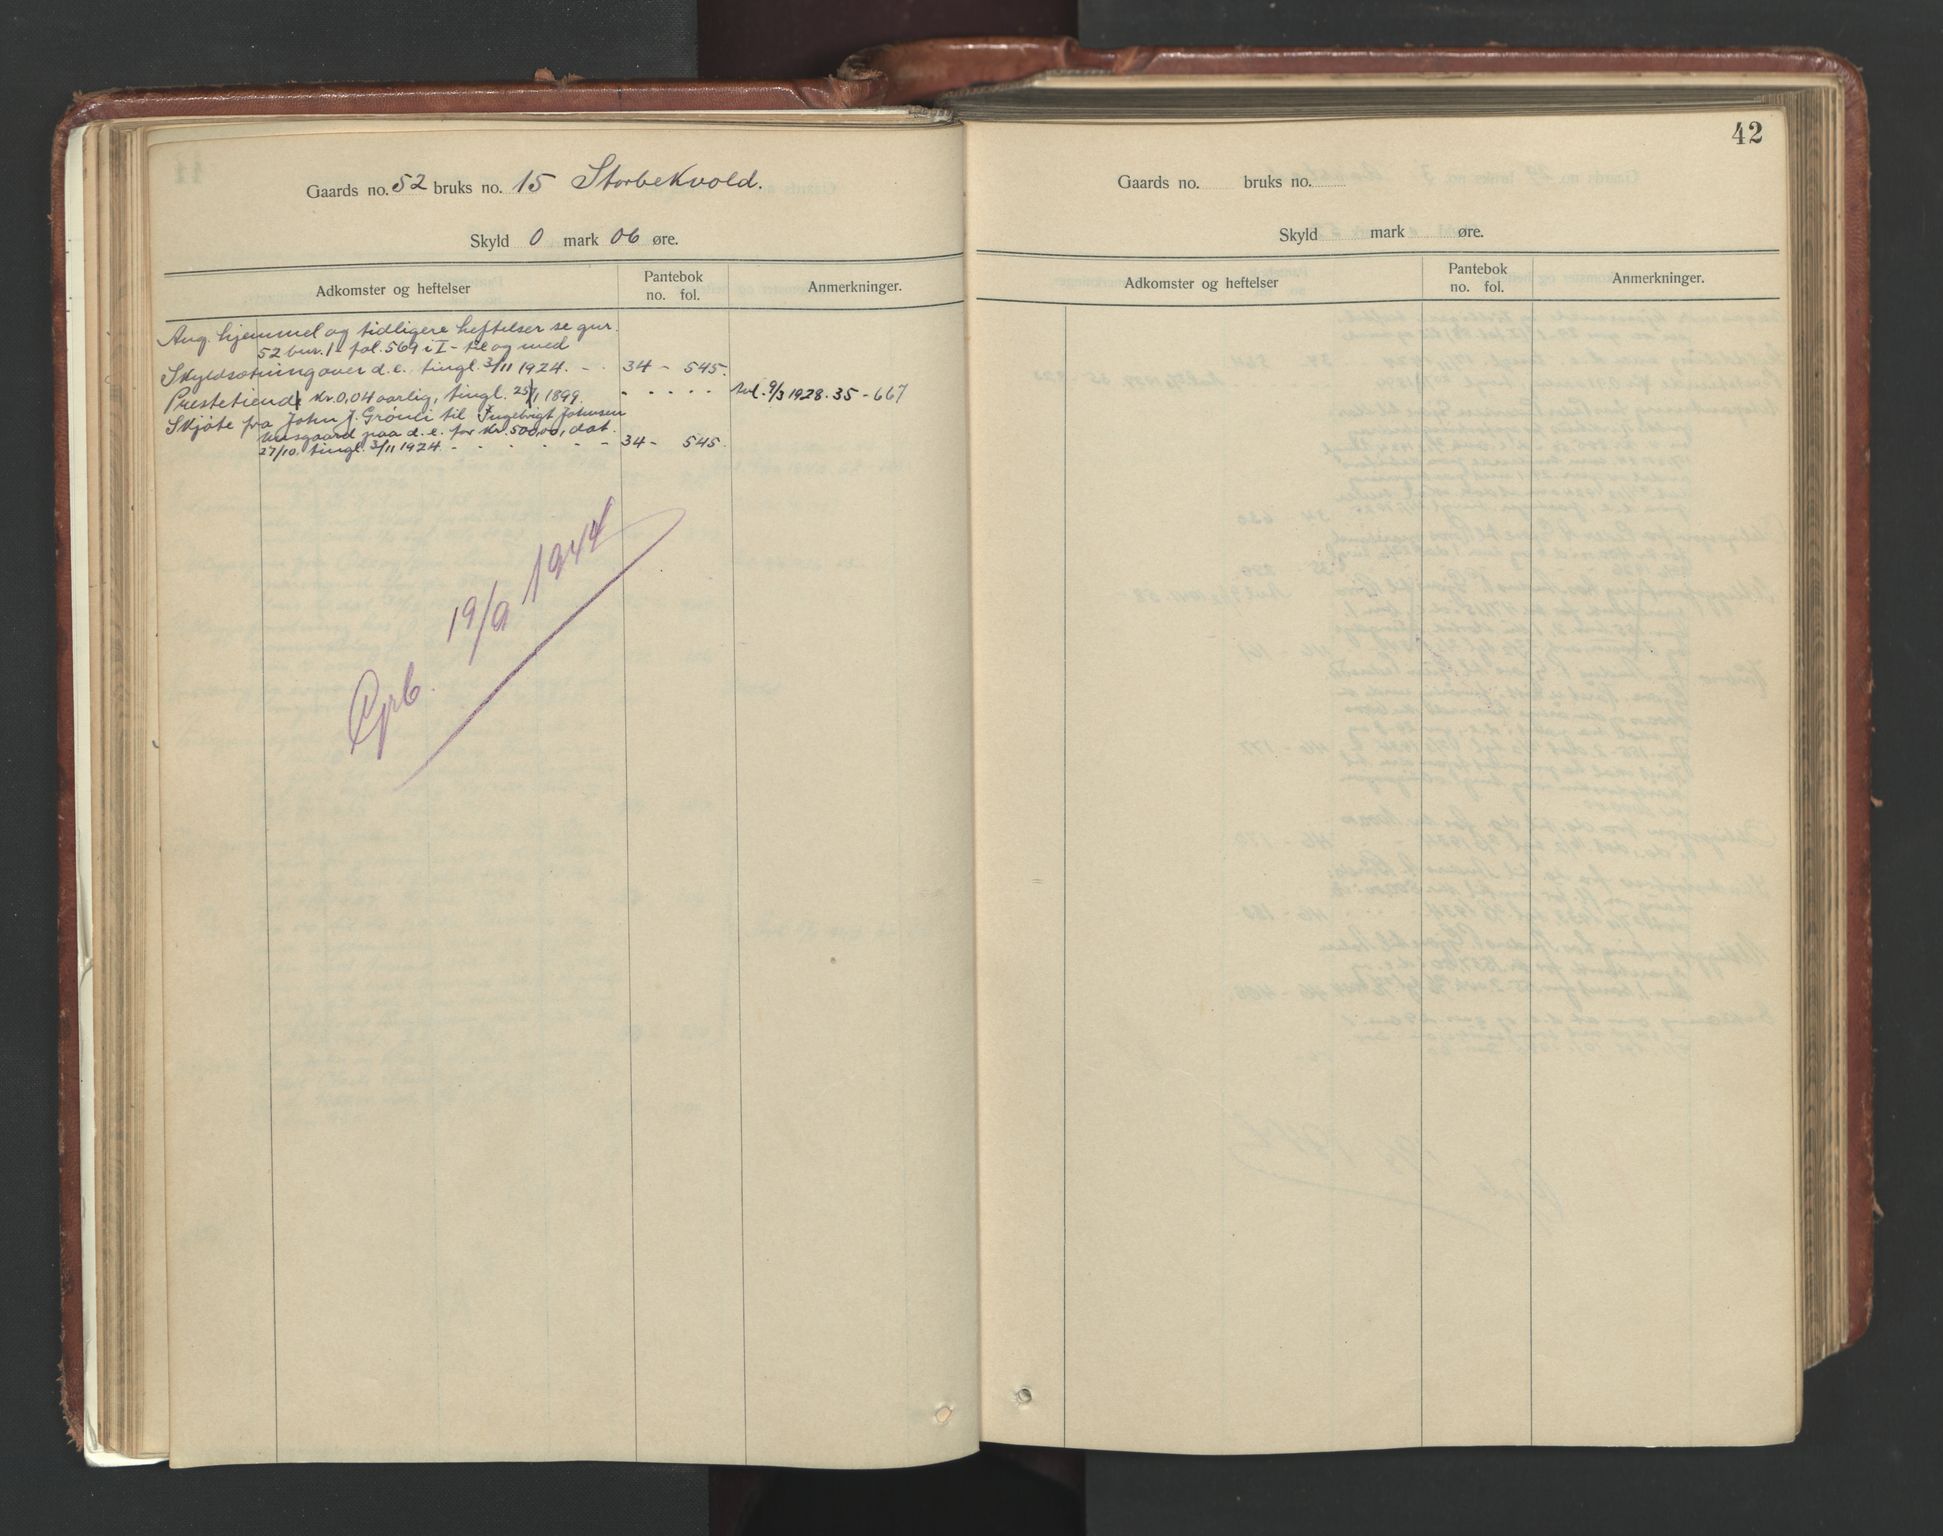 Gaards no. 52 bruks no. 15 Storbekvold.
Skyld 0 mark 06 øre.
Adkomster og heftelser Pantebok no. fol. Anmerkninger.
Ang. hjemmel og tidligere heftelser se gnr.
52 bnr. 1 fol. 569 i I - til og med
Skyldsætning over d. e. tingl. 3/11 1924. - - 34 - 545.
Prestetiende kr. 0,04 aarlig, tingl. 25/1 1899. - - - - - Avl. 9/3 1928. 35 - 667
Skjøte fra John J. Grønli til Ingebrigt Johnsen
paa d. e. for kr. 500,00, dat.
27/10. tingl. 3/11 1924. - - - - - - 34 - 545.
19/9 1944
42
Gaards no. bruks no.
Skyld mark øre.
Adkomster og heftelser Pantebok no. fol. Anmerkninger.